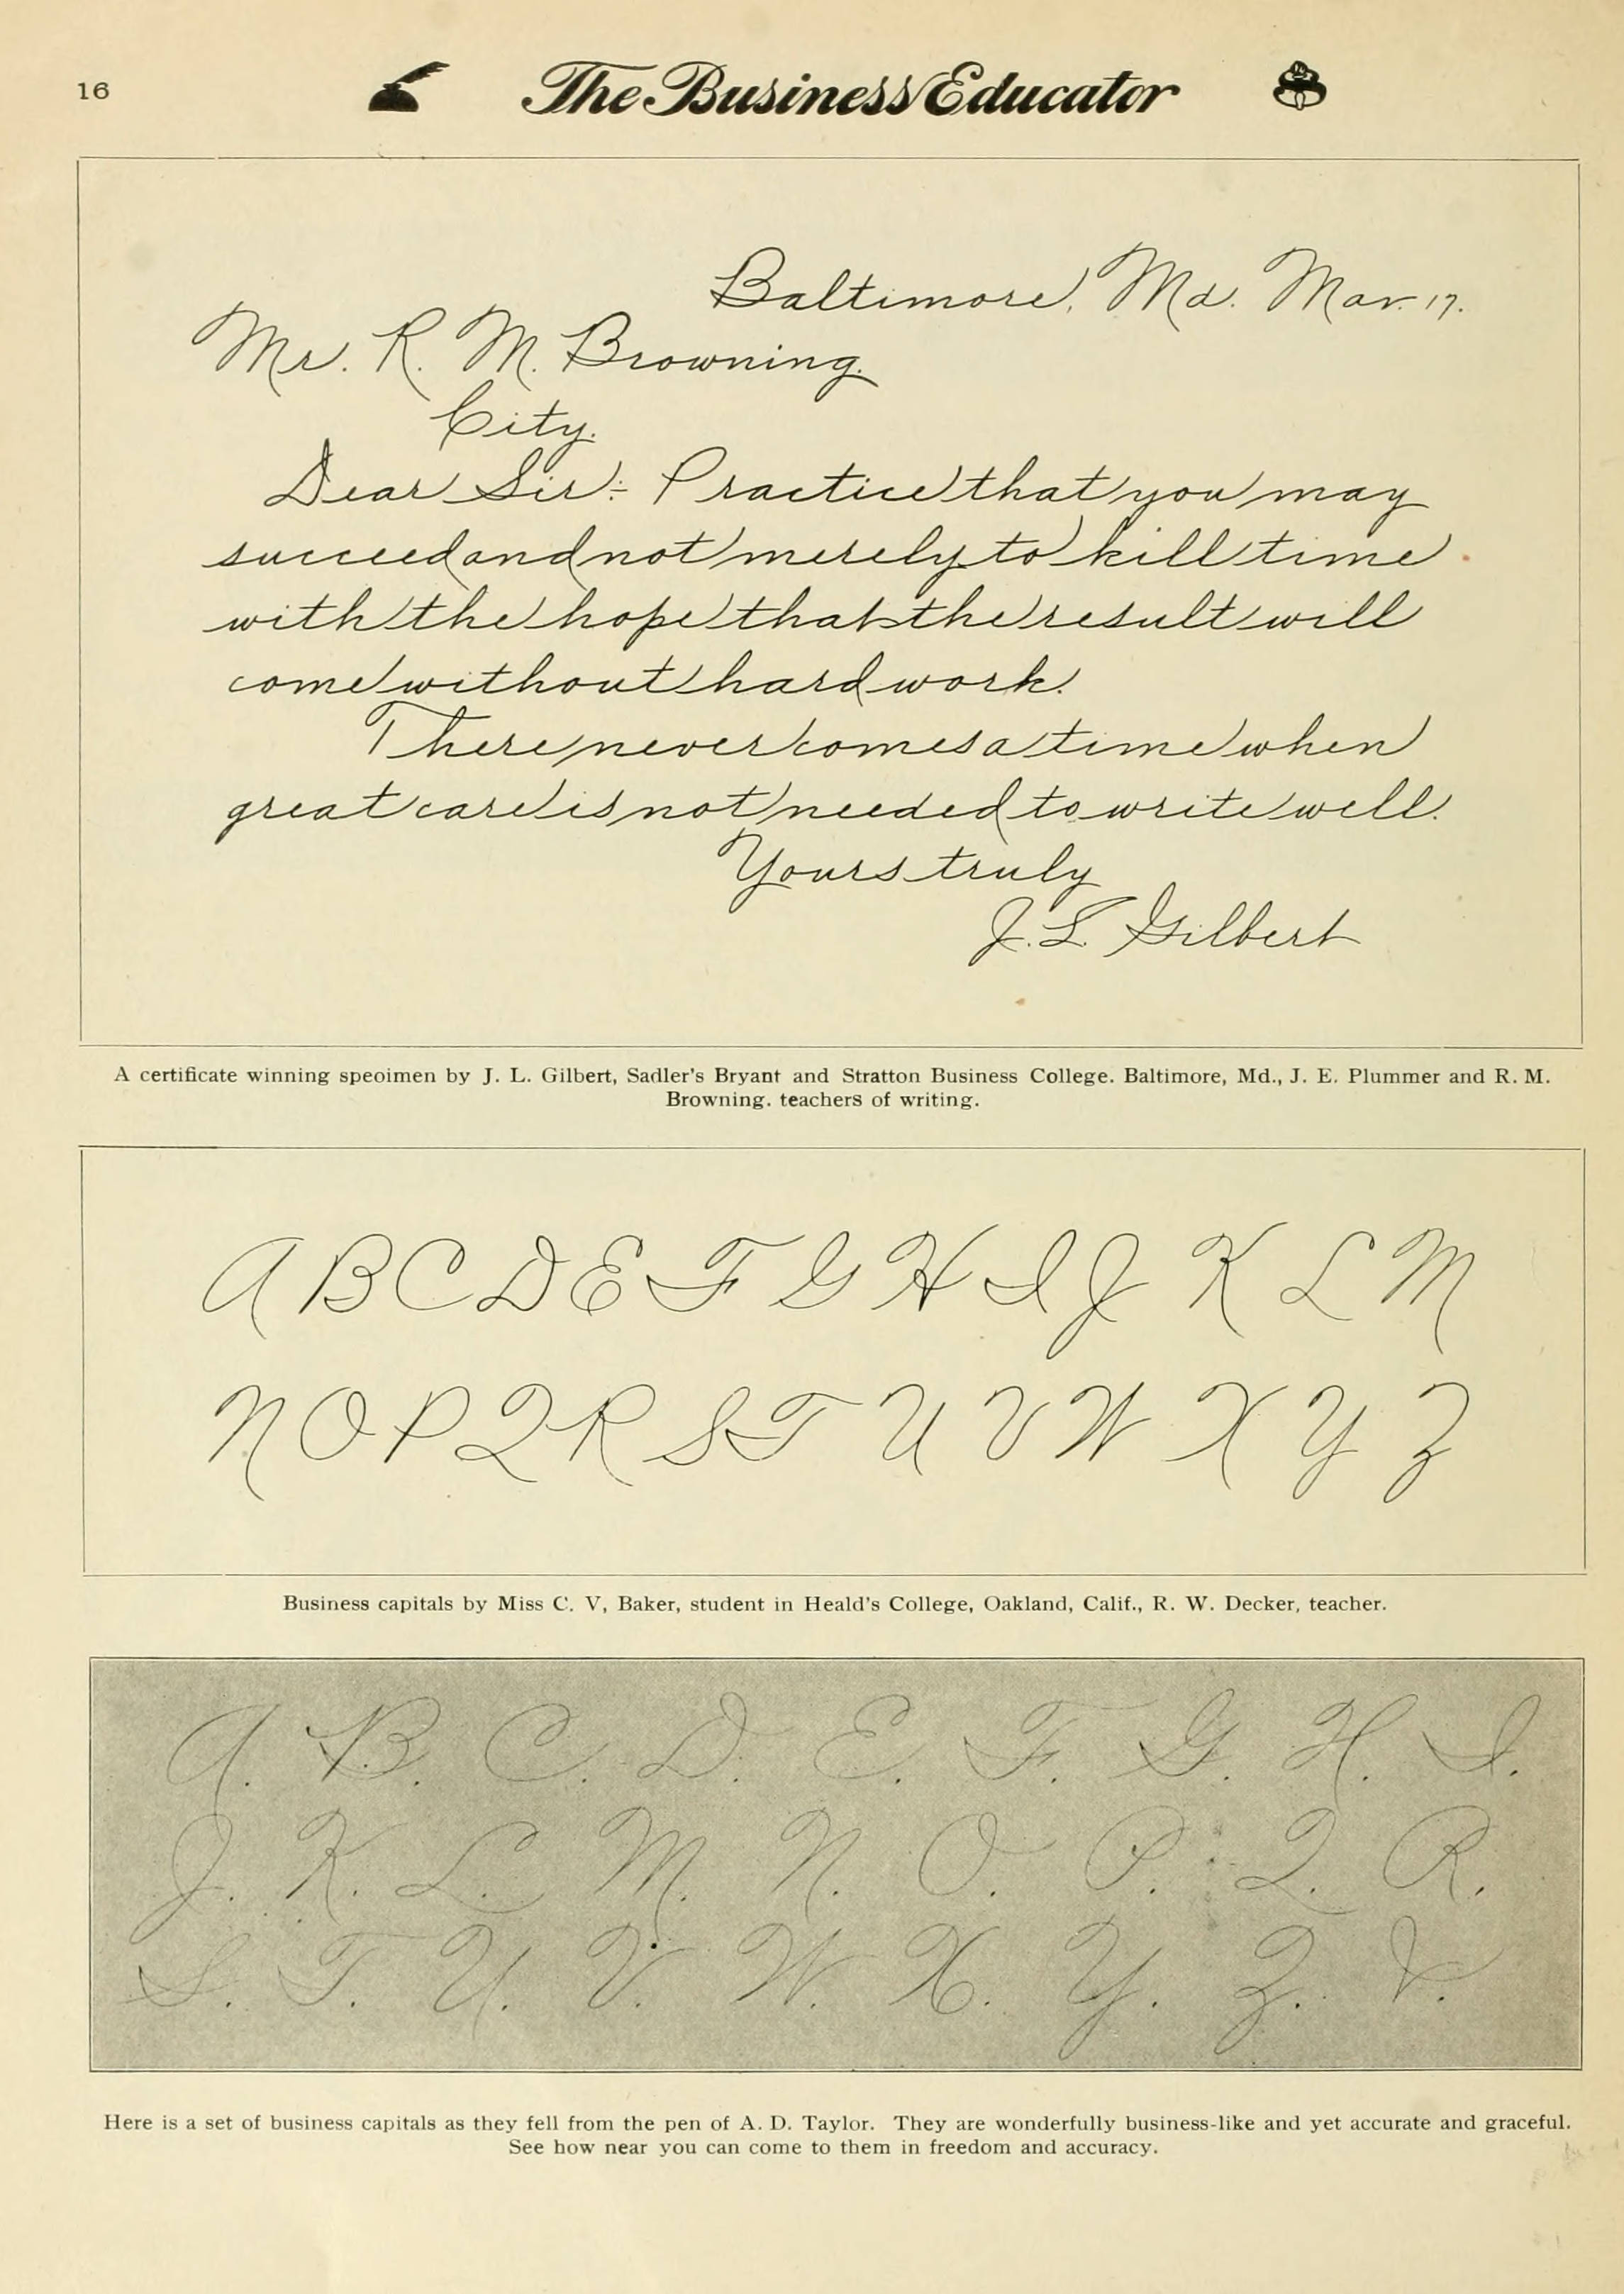 16
The Business Educator
Baltimore, Md. Mar. 17.
Mr. R. M. Browning.
City.
Dear Sir:- Practice that you may
succeed and not merely to kill time
with the hope that the result will
come without hard work.
There never comes a time when
great care is not needed to write well.
Yours truly
J. L. Gilbert
A certificate winning speoimen by J. L. Gilbert, Sadler's Bryant and Stratton Business College. Baltimore, Md., J. E. Plummer and R. M.
Browning. teachers of writing.
A B C D E F G H I J K L M
N O P Q R S T U V W X Y Z
Business capitals by Miss C. V, Baker, student in Heald's College, Oakland, Calif., R. W. Decker, teacher.
A. B. C. D. E. F. G. H. I.
J. K. L. M. N. O. P. Q. R.
S. T. U. V. W. X. Y. Z. V.
Here is a set of business capitals as they fell from the pen of A. D. Taylor. They are wonderfully business-like and yet accurate and graceful.
See how near you can come to them in freedom and accuracy.